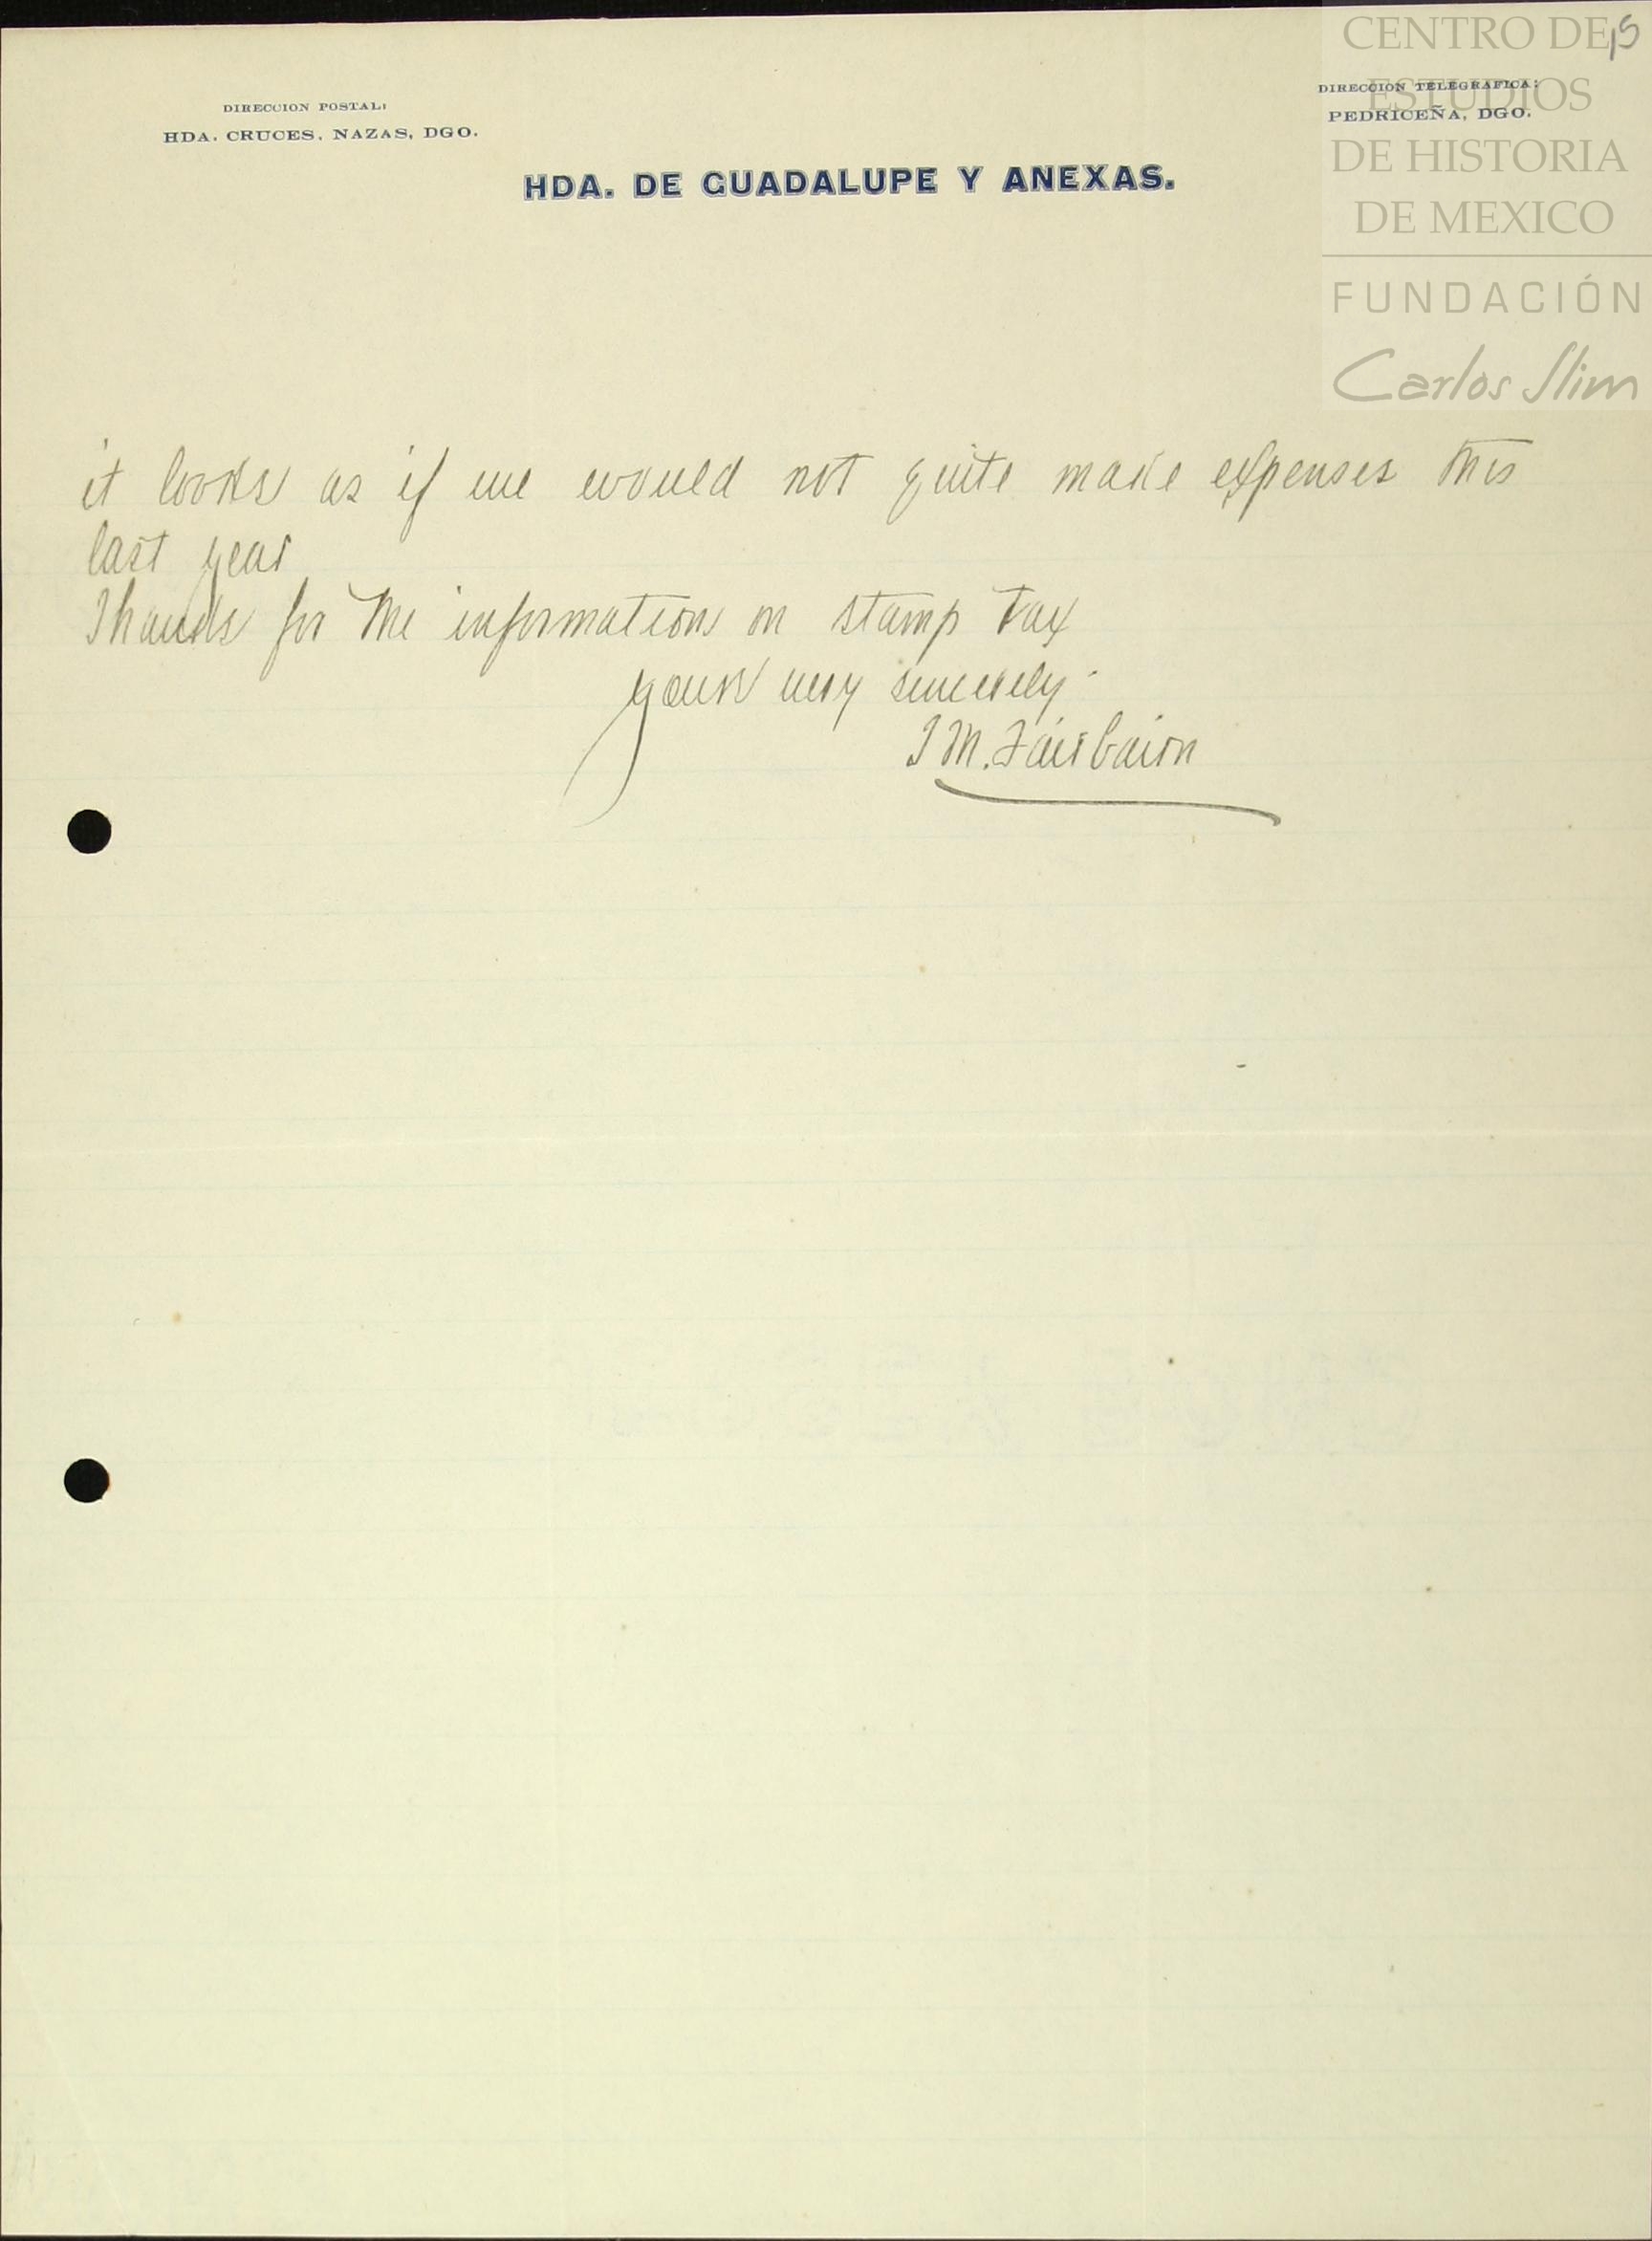 15
DIRECCION POSTAL:
HDA. CRUCES, NAZAS, DGO.
DIRECCION TELEGRAFICA:
PEDRICEÑA, DGO.
HDA. DE GUADALUPE Y ANEXAS.
CENTRO DE
ESTUDIOS
DE HISTORIA
DE MEXICO
FUNDACIÓN
Carlos Slim
it looks as if we would not quite make expenses this
last year
Thanks for the information on stamp tax
yours very sincerely.
J M. Fairbairn